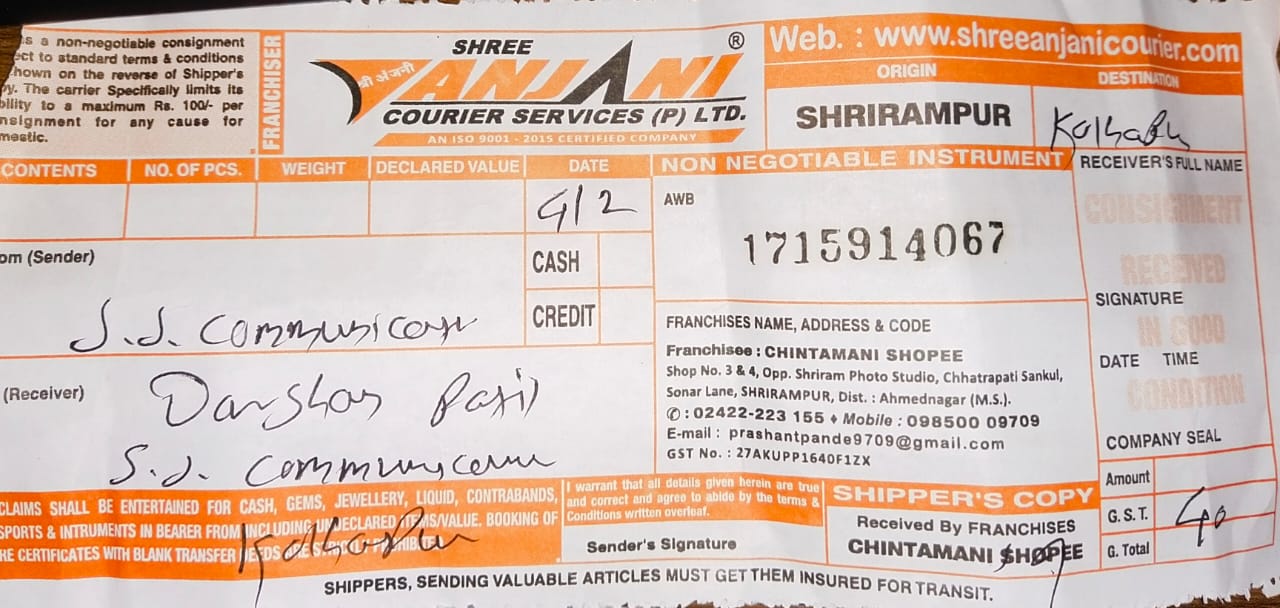 s a non-negotiable consignment
ect to standard terms & conditions
hown on the reverse of Shipper's
py. The carrier Specifically limits its
bility to a maximum Rs. 100/- per
nsignment for any cause for
mestic.
FRANCHISER
SHREE
श्री अंजनी
ANJANI
®
COURIER SERVICES (P) LTD.
AN ISO 9001 - 2015 CERTIFIED COMPANY
Web. : www.shreeanjanicourier.com
ORIGIN DESTINATION
SHRIRAMPUR
CONTENTS NO. OF PCS. WEIGHT DECLARED VALUE DATE
NON NEGOTIABLE INSTRUMENT
RECEIVER'S FULL NAME
AWB
1715914067
CONSIGNMENT
RECEIVED
IN GOOD
CONDITION
SIGNATURE
DATE TIME
COMPANY SEAL
om (Sender)
CASH
CREDIT
(Receiver)
Darshan Patil
FRANCHISES NAME, ADDRESS & CODE
Franchisee : CHINTAMANI SHOPEE
Shop No. 3 & 4, Opp. Shriram Photo Studio, Chhatrapati Sankul,
Sonar Lane, SHRIRAMPUR, Dist. : Ahmednagar (M.S.).
✆ : 02422-223 155 ♦ Mobile : 098500 09709
E-mail : prashantpande9709@gmail.com
GST No. : 27AKUPP1640F1ZX
CLAIMS SHALL BE ENTERTAINED FOR CASH, GEMS, JEWELLERY, LIQUID, CONTRABANDS,
SPORTS & INTRUMENTS IN BEARER FROM INCLUDING UNDECLARED ITEMS/VALUE. BOOKING OF
RE CERTIFICATES WITH BLANK TRANSFER
I warrant that all details given herein are true
and correct and agree to abide by the terms &
Conditions written overleaf.
Sender's Signature
SHIPPER'S COPY
Received By FRANCHISES
CHINTAMANI SHOPEE
Amount
G. S. T.
G. Total
SHIPPERS, SENDING VALUABLE ARTICLES MUST GET THEM INSURED FOR TRANSIT.